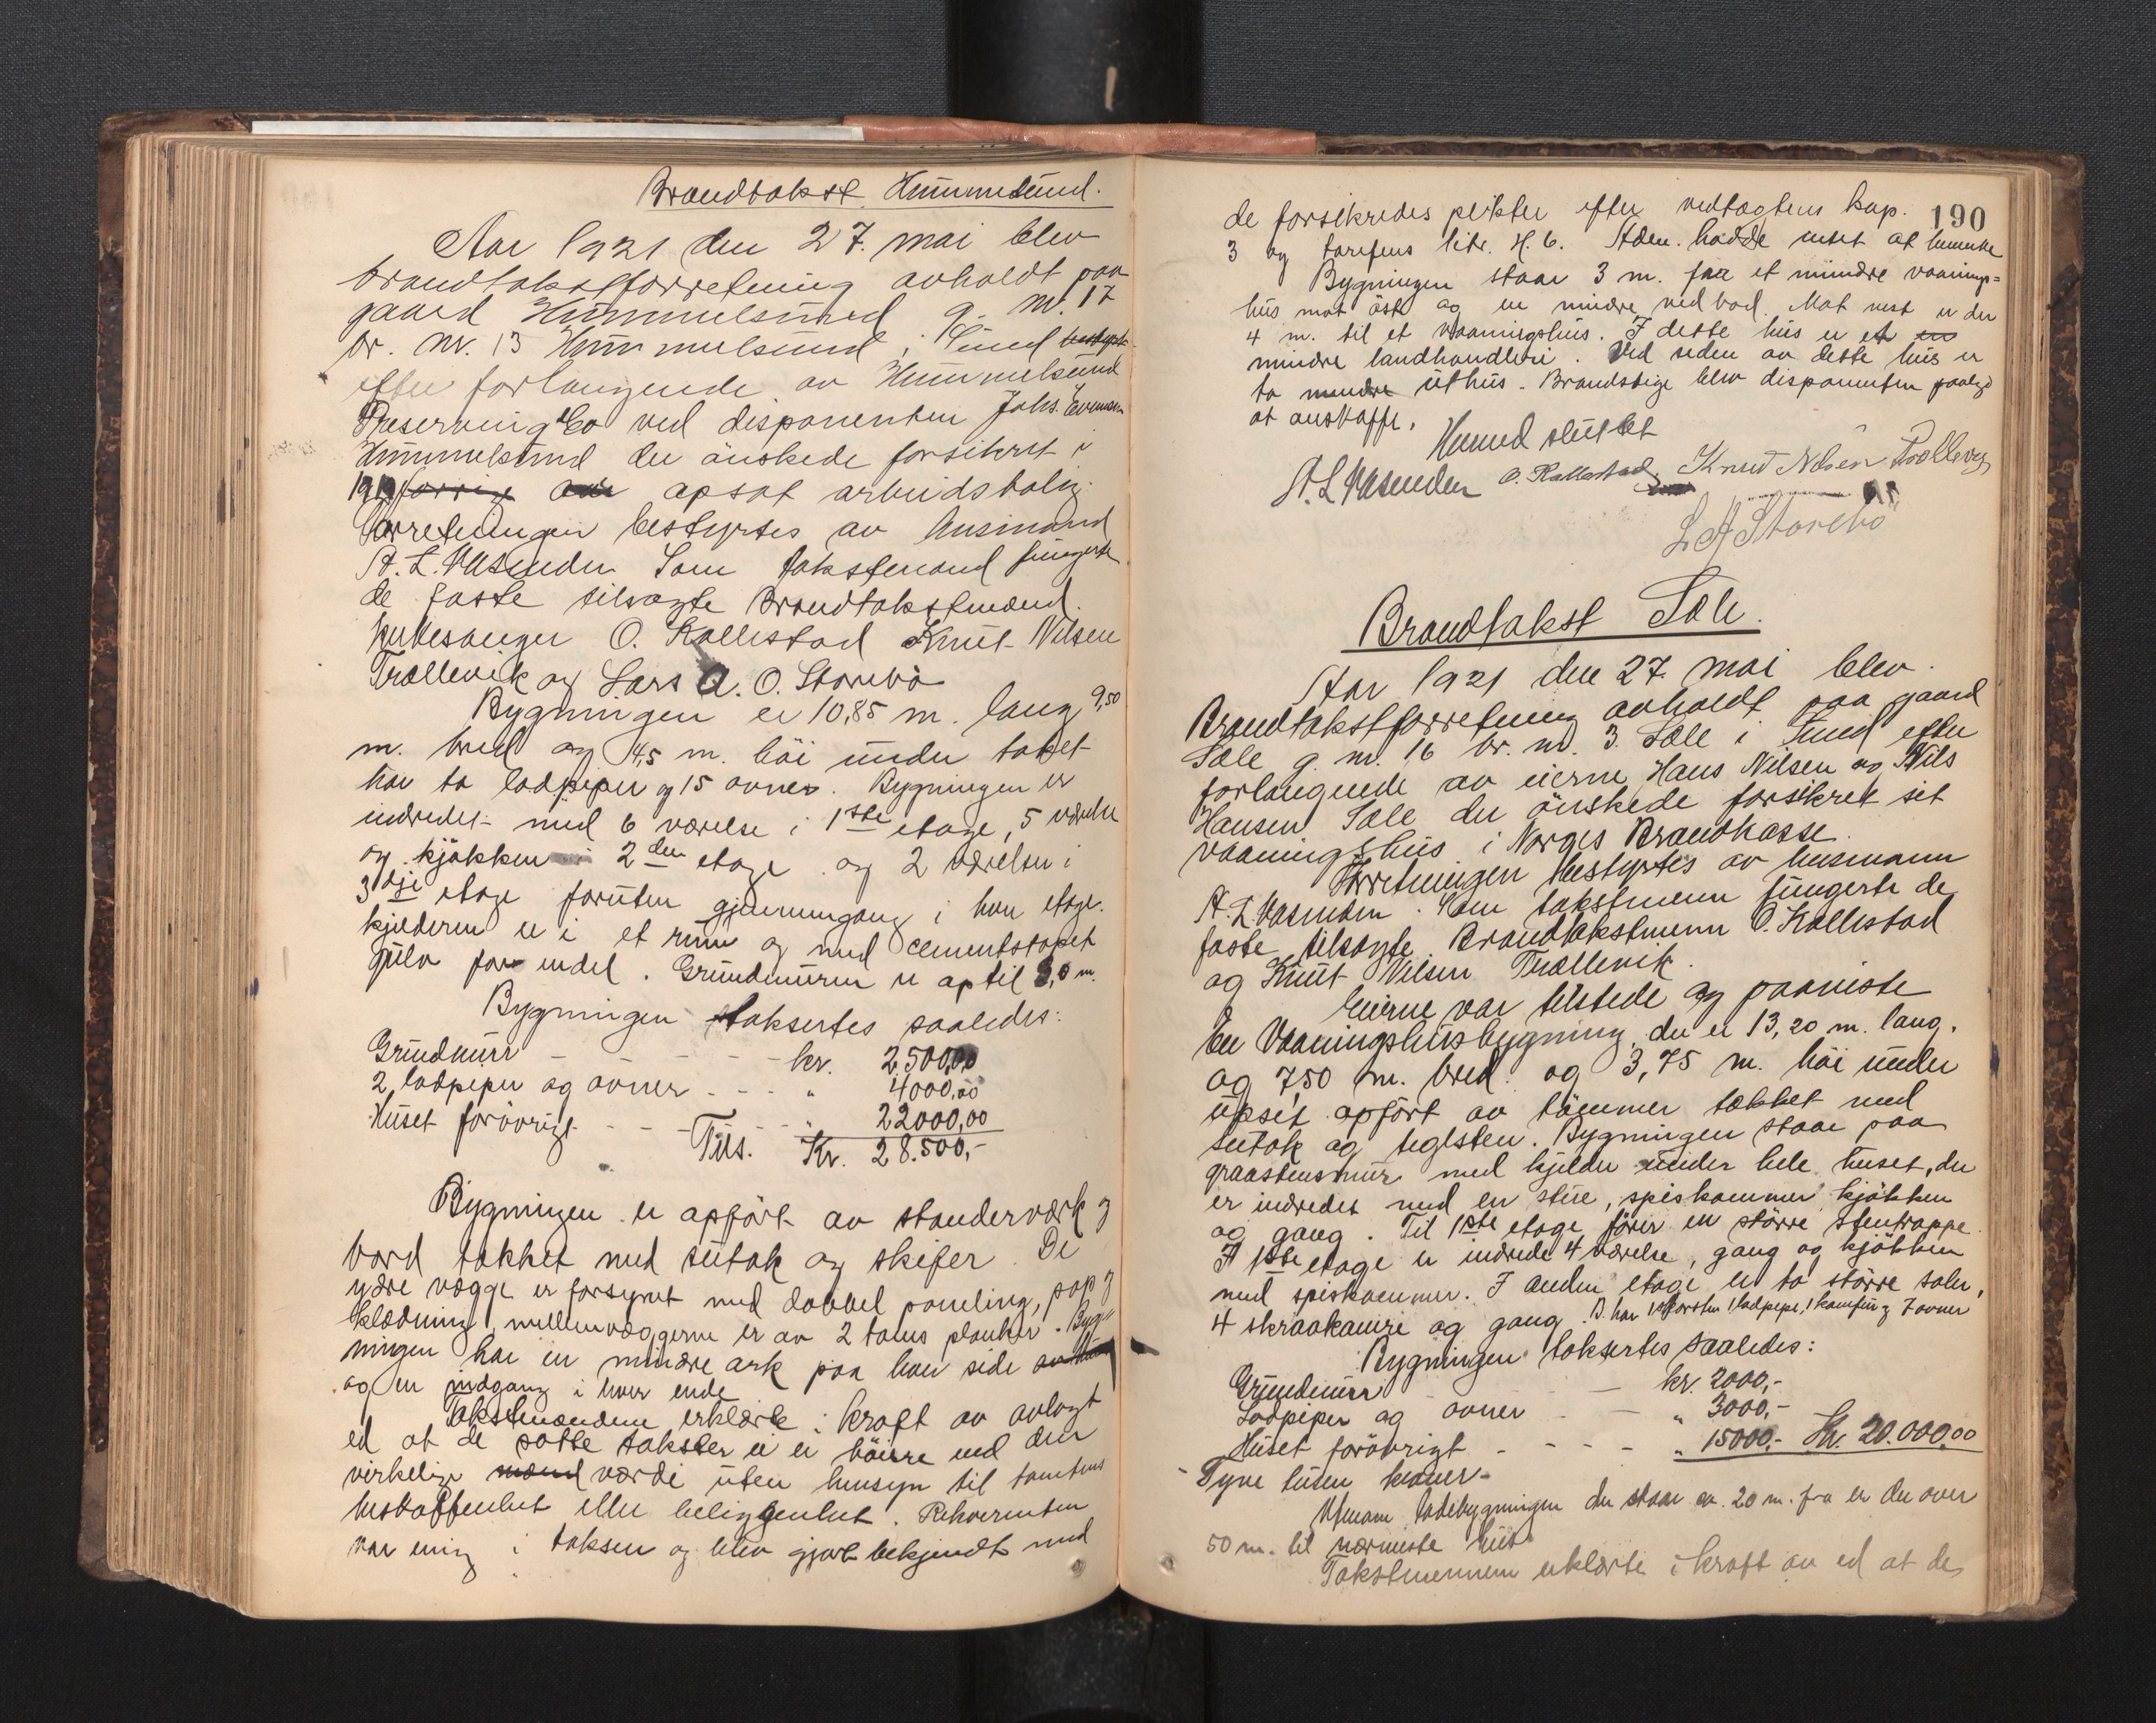 Brandtakst Hummelsund.
Aar 1921 den 27. mai blev
brandtakstforretning avholdt paa
gaard Hummelsund g. nr. 17
br. nr. 13 Hummelsund i Sund
efter forlangende av Hummelsund
Preserving Co ved disponenten Johs.
Hummelsund der önskede forsikret i
opsat arbeidsbolig.
Forretningen bestyrtes av lensmand
A. L. Vasenden Som takstmænd fungerte
de faste tilvagte Brandtakstmænd.
Kirkesanger O. Kallestad Knut Nilsen
Trællevik og Lars A. O. Storebö
Bygningen er 10,85 m. lang 9,50
m. bred og 4,5 m. höi under taket
har to ladpiper og 15 ovner. Bygningen er
indredet med 6 værelse i 1ste etage, 5 værelse
og kjökken i 2den etage og 2 værelser i
3dje etage foruten gjennemgang i hver etage.
kjelderen er i et rum og med cementstøpet
gulv for endel. Grundmuren er optil 3,0 m.
Bygningen taksertes saaledes:
Grundmur - - - - kr. 2500,00
2 ladpiper og ovner - - - " 4000,00
Huset forövrigt - - - " 22000,00
Tils. Kr. 28.500,-
Bygningen er opfört av standerværk og
bord takket med sutak og skifer. De
ydre vægge er forsynet med dobbel paneling, pap og
klædning, mellemvæggerne er av 2 toms planker. Byg-
ningen har en mindre ark paa hver side
og en indgang i hver ende
Takstmændene erklærte i kraft av avlagt
ed at de satte takster ei er höiere end den
virkelige værdi uten hensyn til tomtens
beskaffenhet eller beliggenhet. Rekvirenten
var enig i taksten og blev gjort bekjendt med
190
de forsikredes pligter efter vedtægtens kap.
3 og tarifens litr. H. 6. Aden. hadde intet at bemerke
Bygningen staar 3 m. fra et mindre vaanings=
hus mot öst og en mindre vedbod. Mot vest er der
4 m. til et vaaningshus. I dette hus er et
mindre landhandleri. Ved siden av dette hus er
to mindre uthus. Brandstige blev disponenten paalagt
at anskaffe.
Hermed sluttet
A. L. Vasenden O. Kallestad Knut Nilsen Trællevig
L A Storebö
Brandtakst Sæle.
Aar 1921 den 27. mai blev
Brandtakstforretning avholdt paa gaard
Sæle g. nr. 16 br. nr. 3. Sæle i Sund efter
forlangende av eierne Hans Nilsen og Nils
Hansen Sæle der önskede forsikret sit
vaaningshus i Norges Brandkasse.
Forretningen bestyrtes av lensmann
A. L. Vasenden. Som takstmenn fungerte de
faste tilvagte Brandtakstmenn O. Kallestad
og Knut Nilsen Trællevik.
Eierne var tilstede og paaviste
En Vaaningshusbygning, der er 13,20 m. lang.
og 7,50 m. bred. og 3,75 m. höi under
upset opfört av tömmer tækket med
sutak og teglsten. Bygningen staar paa
graastensmur med kjelder under hele huset, der
er indredet med en stue, spiskammer kjökken
og gang. Til 1ste etage förer en större stentrappe
I 1ste etage er indrede 4 værelse, gang og kjökken
med spiskammer. I anden etage er to större saler,
4 skraakamre og gang. B. har 1 skorsten 1 ladpipe, 1 kamfin og 7 ovner
Bygningen taksertes saaledes:
Grundmur - - kr. 2000,-
Ladpiper og ovner - - " 3000,-
Huset forövrigt - - - - " 15000,- Kr. 20.000,00
Tyve tusen kroner-
Utenom ladebygningen der staar ca. 20 m. fra er der over
50 m. til nærmeste hus
Takstmennene erklærte i kraft av ed at de